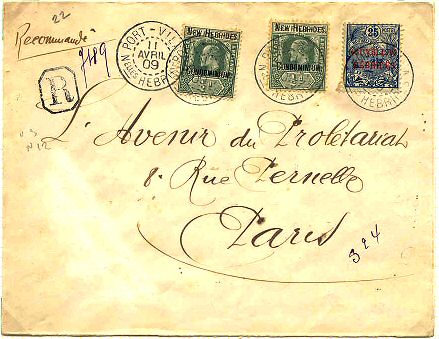 22
Recommandé
7489
R
PORT-VILA
11
AVRIL
09
NLLES HEBRIDES
NEW HEBRIDES.
CONDOMINIUM
NEW HEBRIDES.
CONDOMINIUM
25
NOUVELLES
HÉBRIDES
L'Avenir du Proletariat
8. Rue Pernelle
Paris
324